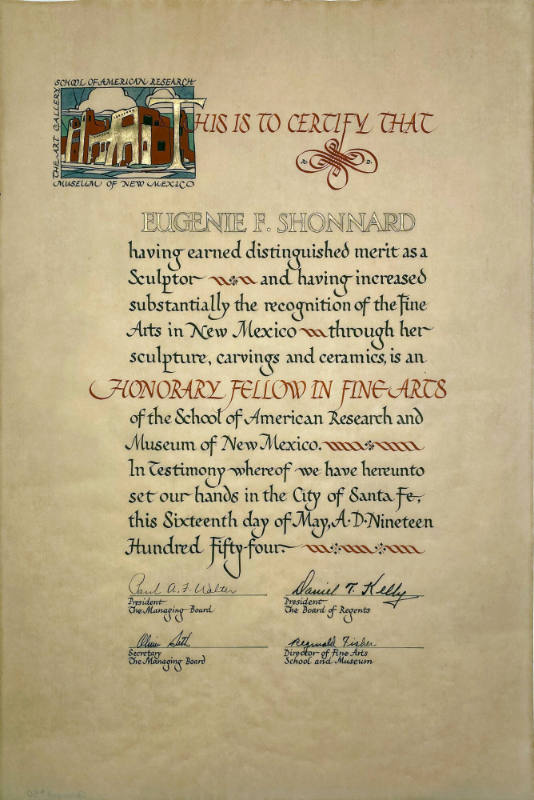 SCHOOL OF AMERICAN RESEARCH
THE ART GALLERY
MUSEUM OF NEW MEXICO
THIS IS TO CERTIFY THAT
EUGENIE F. SHONNARD
having earned distinguished merit as a
Sculptor and having increased
substantially the recognition of the Fine
Arts in New Mexico through her
sculpture, carvings and ceramics, is an
HONORARY FELLOW IN FINE ARTS
of the School of American Research and
Museum of New Mexico.
In Testimony whereof we have hereunto
set our hands in the City of Santa Fe,
this Sixteenth day of May, A·D·Nineteen
Hundred Fifty-four
Paul A. F. Walter
President
The Managing Board
Daniel T. Kelly
President
The Board of Regents
Secretary
The Managing Board
Reginald Fisher
Director of Fine Arts
School and Museum